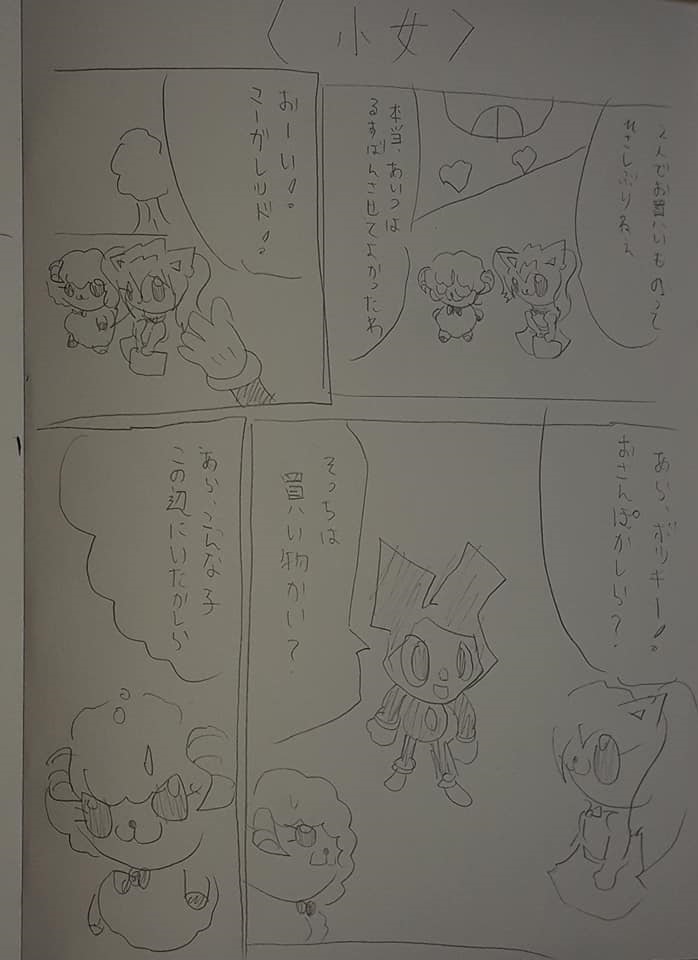 〈小女〉
2人でお買いものって
ひさしぶりねぇ
本当、あいつは
るすばんさせてよかったわ
おーい!
こーがレッド!
あら、ボッキー!
おさんぽかしら?
そっちは
買い物かい?
あら、こんな子
この辺にいたかしら